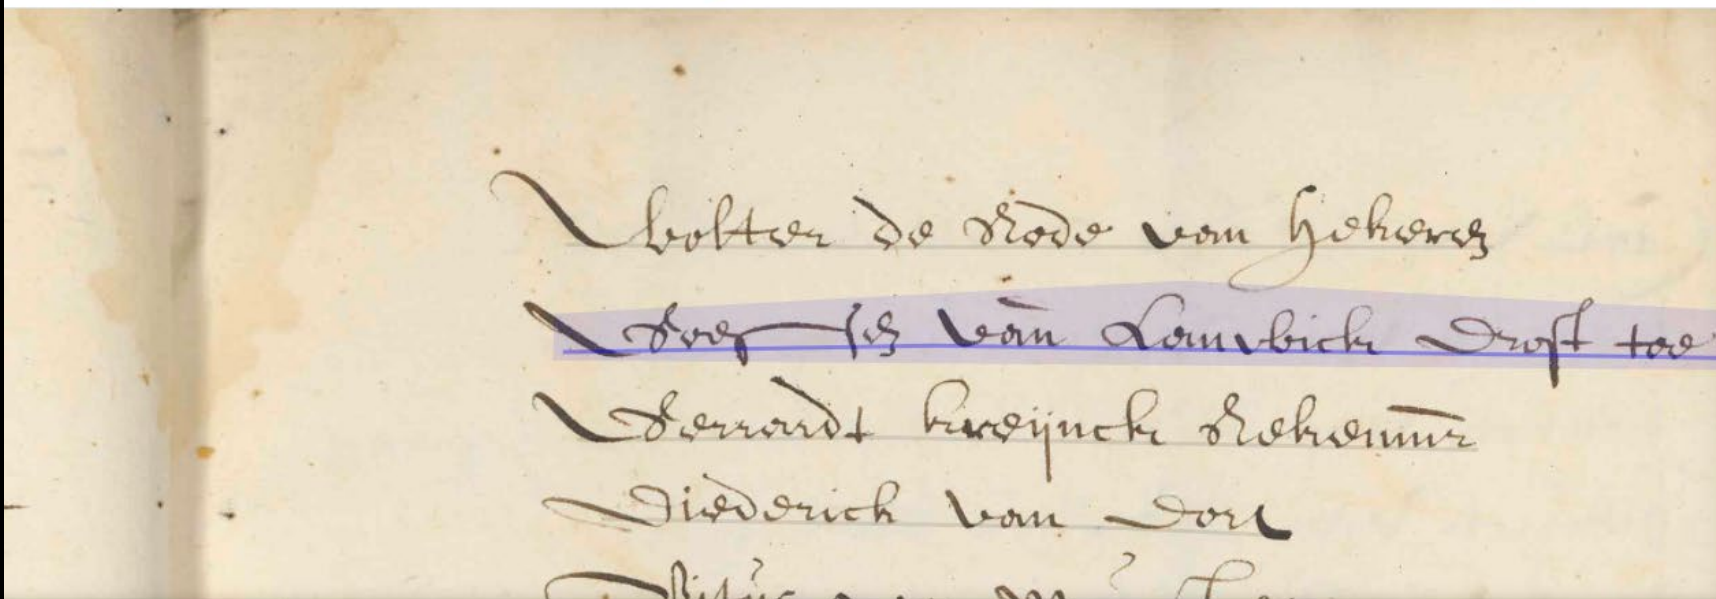 Wolter de Rode van Hekeren
Goessen van Lauwick Drost toe
Gerrardt kreijnck Rekenmr
Diederick van Dort